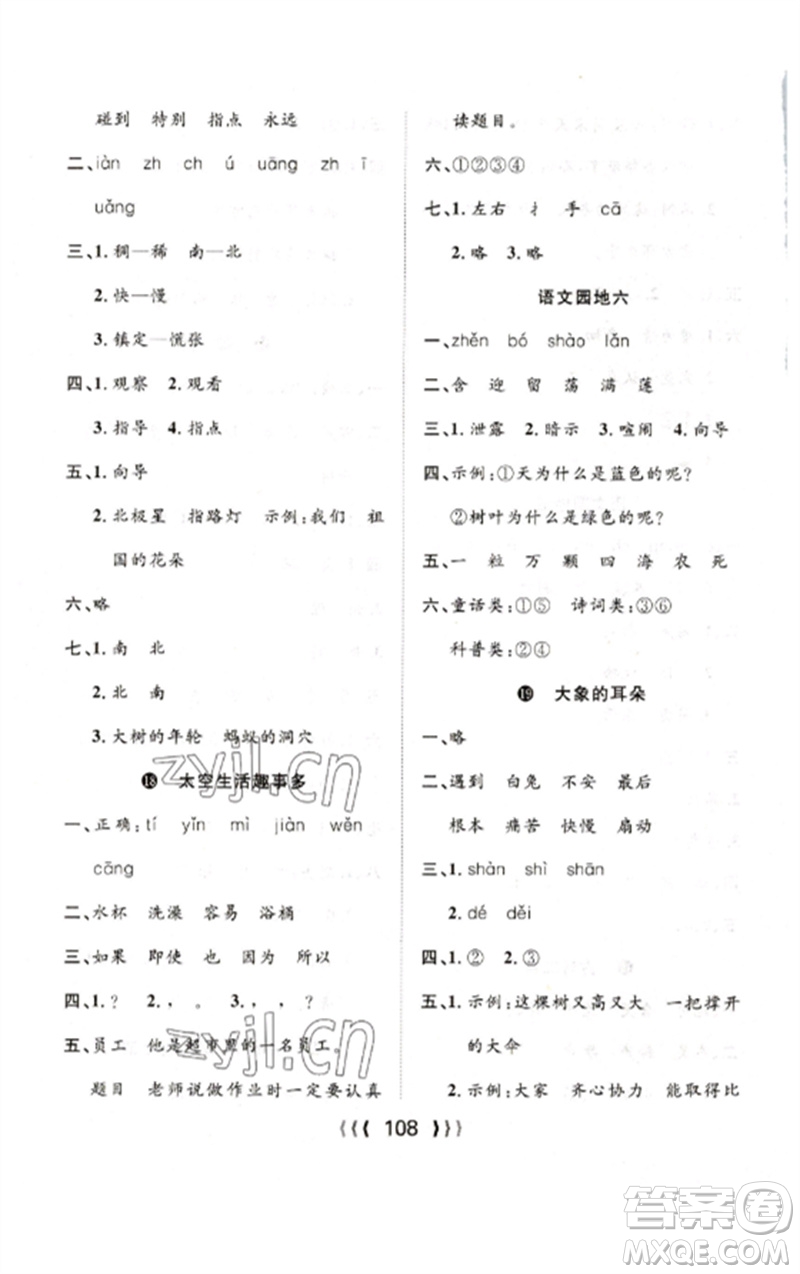 碰到 特别 指点 永远
二、iàn zh ch ú uāng zh ī
uǎng
三、1. 稠—稀 南—北
2. 快—慢
3. 镇定—慌张
四、1. 观察 2. 观看
3. 指导 4. 指点
五、1. 向导
2. 北极星 指路灯 示例:我们 祖
国的花朵
六、略
七、1. 南 北
2. 北 南
3. 大树的年轮 蚂蚁的洞穴
⓲ 太空生活趣事多
一、正确:tí yǐn mì jiàn wěn
cāng
二、水杯 洗澡 容易 浴桶
三、如果 即使 也 因为 所以
四、1. ? 2. , 。 3. , ?
五、员工 他是超市里的一名员工。
题目 老师说做作业时一定要认真
读题目。
六、①②③④
七、1. 左右 扌 手 cā
2. 略 3. 略
语文园地六
一、zhěn bó shào lǎn
二、含 迎 留 荡 满 莲
三、1. 泄露 2. 暗示 3. 喧闹 4. 向导
四、示例:①天为什么是蓝色的呢?
②树叶为什么是绿色的呢?
五、一 粒 万 颗 四 海 农 死
六、童话类:①⑤ 诗词类:③⑥
科普类:②④
⓳ 大象的耳朵
一、略
二、遇到 白兔 不安 最后
根本 痛苦 快慢 扇动
三、1. shàn shì shān
2. dé děi
四、1. ② 2. ③
五、1. 示例:这棵树又高又大 一把撑开
的大伞
2. 示例:大家 齐心协力 能取得比
108
zyjl.cn
zyjl.cn
答案圈
MXQE.COM